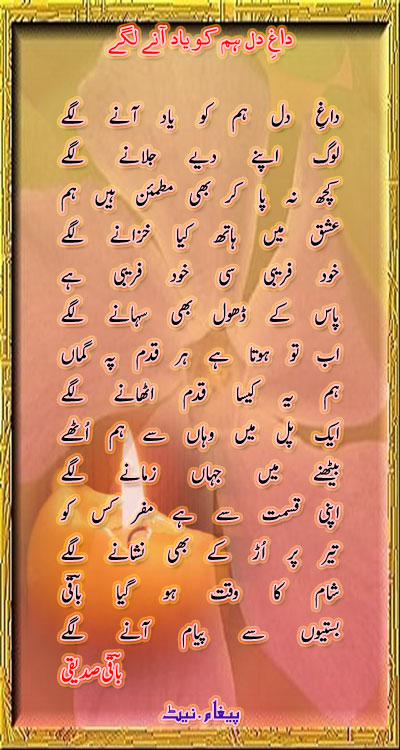 داغِ دل ہم کو یاد آنے لگے
داغِ دل ہم کو یاد آنے لگے
لوگ اپنے دیے جلانے لگے
کچھ نہ پا کر بھی مطمئن ہیں ہم
عشق میں ہاتھ کیا خزانے لگے
خود فریبی سی خود فریبی ہے
پاس کے ڈھول بھی سہانے لگے
اب تو ہوتا ہے ہر قدم پہ گماں
ہم یہ کیسا قدم اٹھانے لگے
ایک پل میں وہاں سے ہم اُٹھے
بیٹھنے میں جہاں زمانے لگے
اپنی قسمت سے ہے مفر کس کو
تیر پر اُڑ کے بھی نشانے لگے
شام کا وقت ہو گیا باقیؔ
بستیوں سے پیام آنے لگے
باقیؔ صدیقی
پیغام.نیٹ